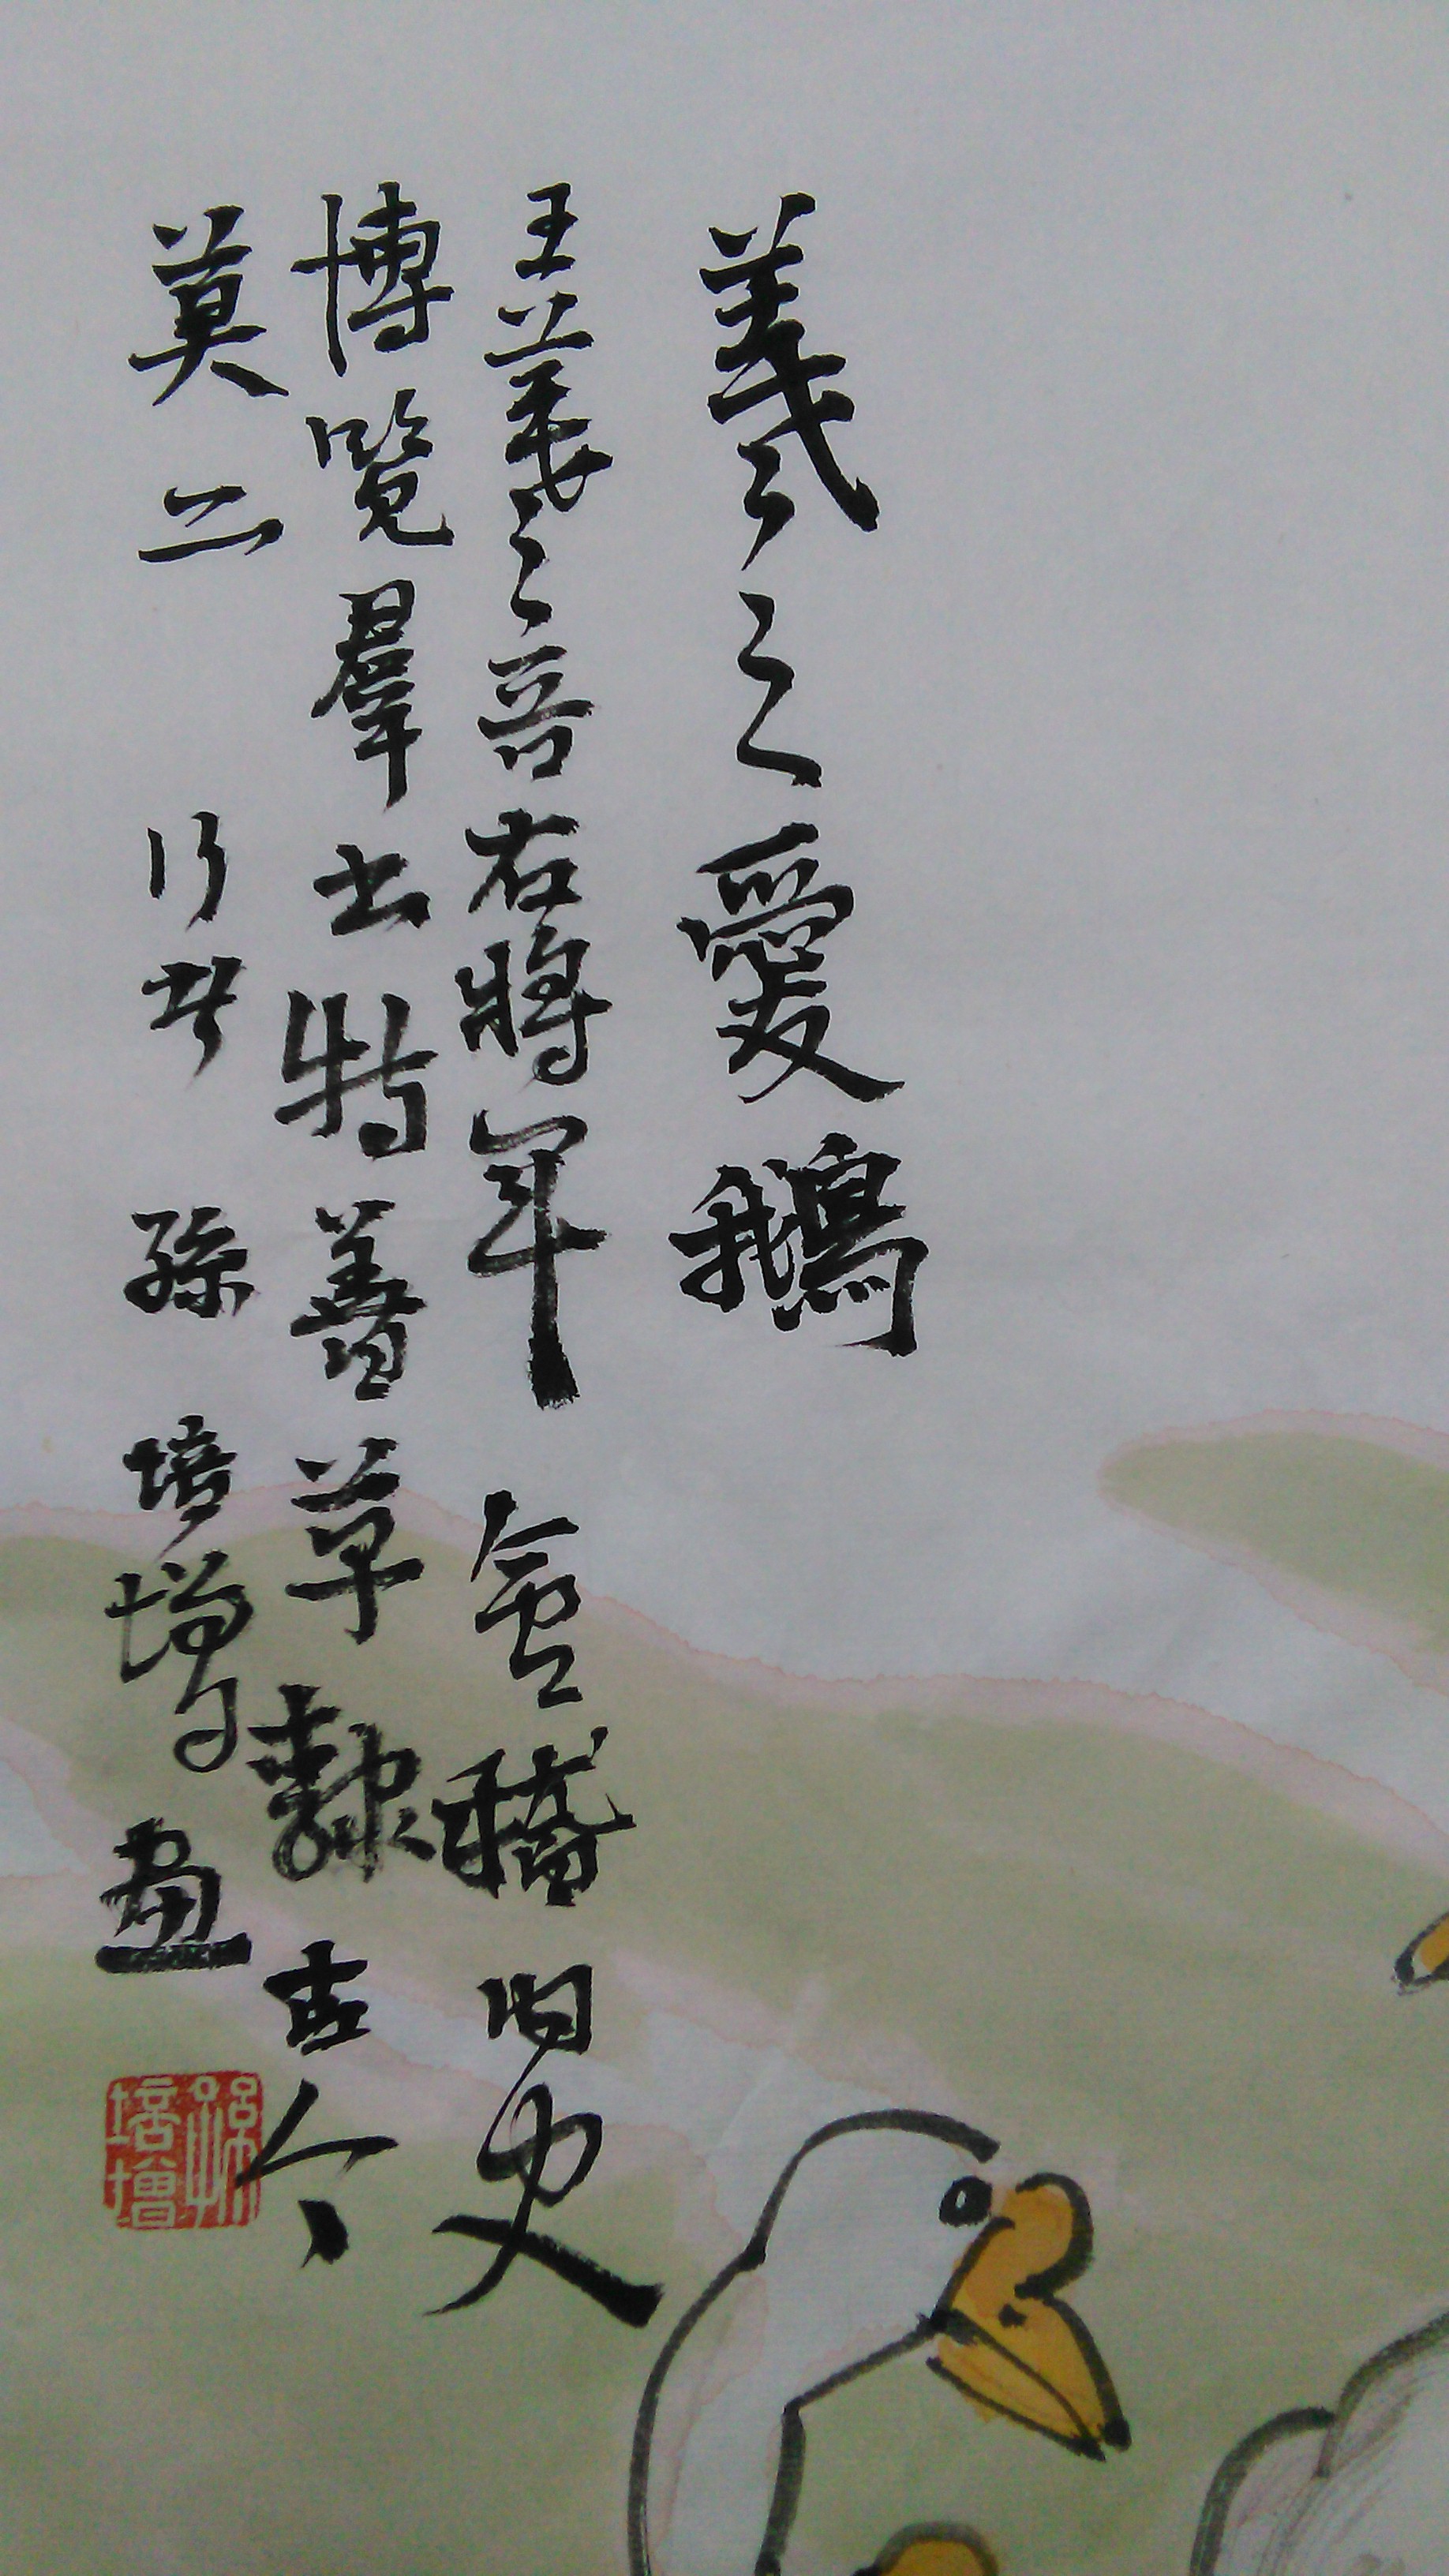 羲之愛鵝
王羲之晉右將軍會稽內史
博覽羣書特善草隸古今
莫二 孫培增畫
孫培增